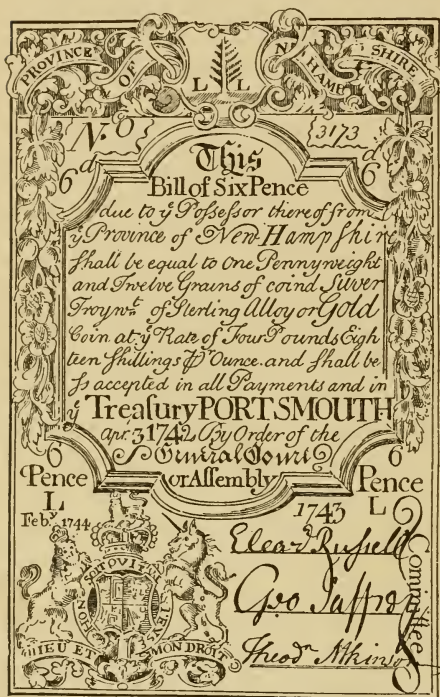 PROVINCE OF N HAMP SHIRE
L L
No 3173
6d 6d
This
Bill of Six Pence
due to ẏ Poſseſsor thereof from
ẏ Province of New-Hampſhire
Shall be equal to One Pennyweight
and Twelve Grains of coind Silver
Troy wt. of Sterling Alloy or Gold
Coin at ẏ Rate of Four Pounds Eigh
teen ſhillings ⅌ Ounce. and ſhall be
ſo accepted in all Payments and in
ẏ Treaſury PORTSMOUTH
Apr. 3 1742 By Order of the
General Court
or Aſsembly
6 6
Pence Pence
L L
Feby. 1744 1743
HONI SOIT QUI MAL Y PENSE
DIEU ET MON DROIT
Eleazr. Ruſsell
Geo Jaffrey
Theodr. Atkinson
Committee